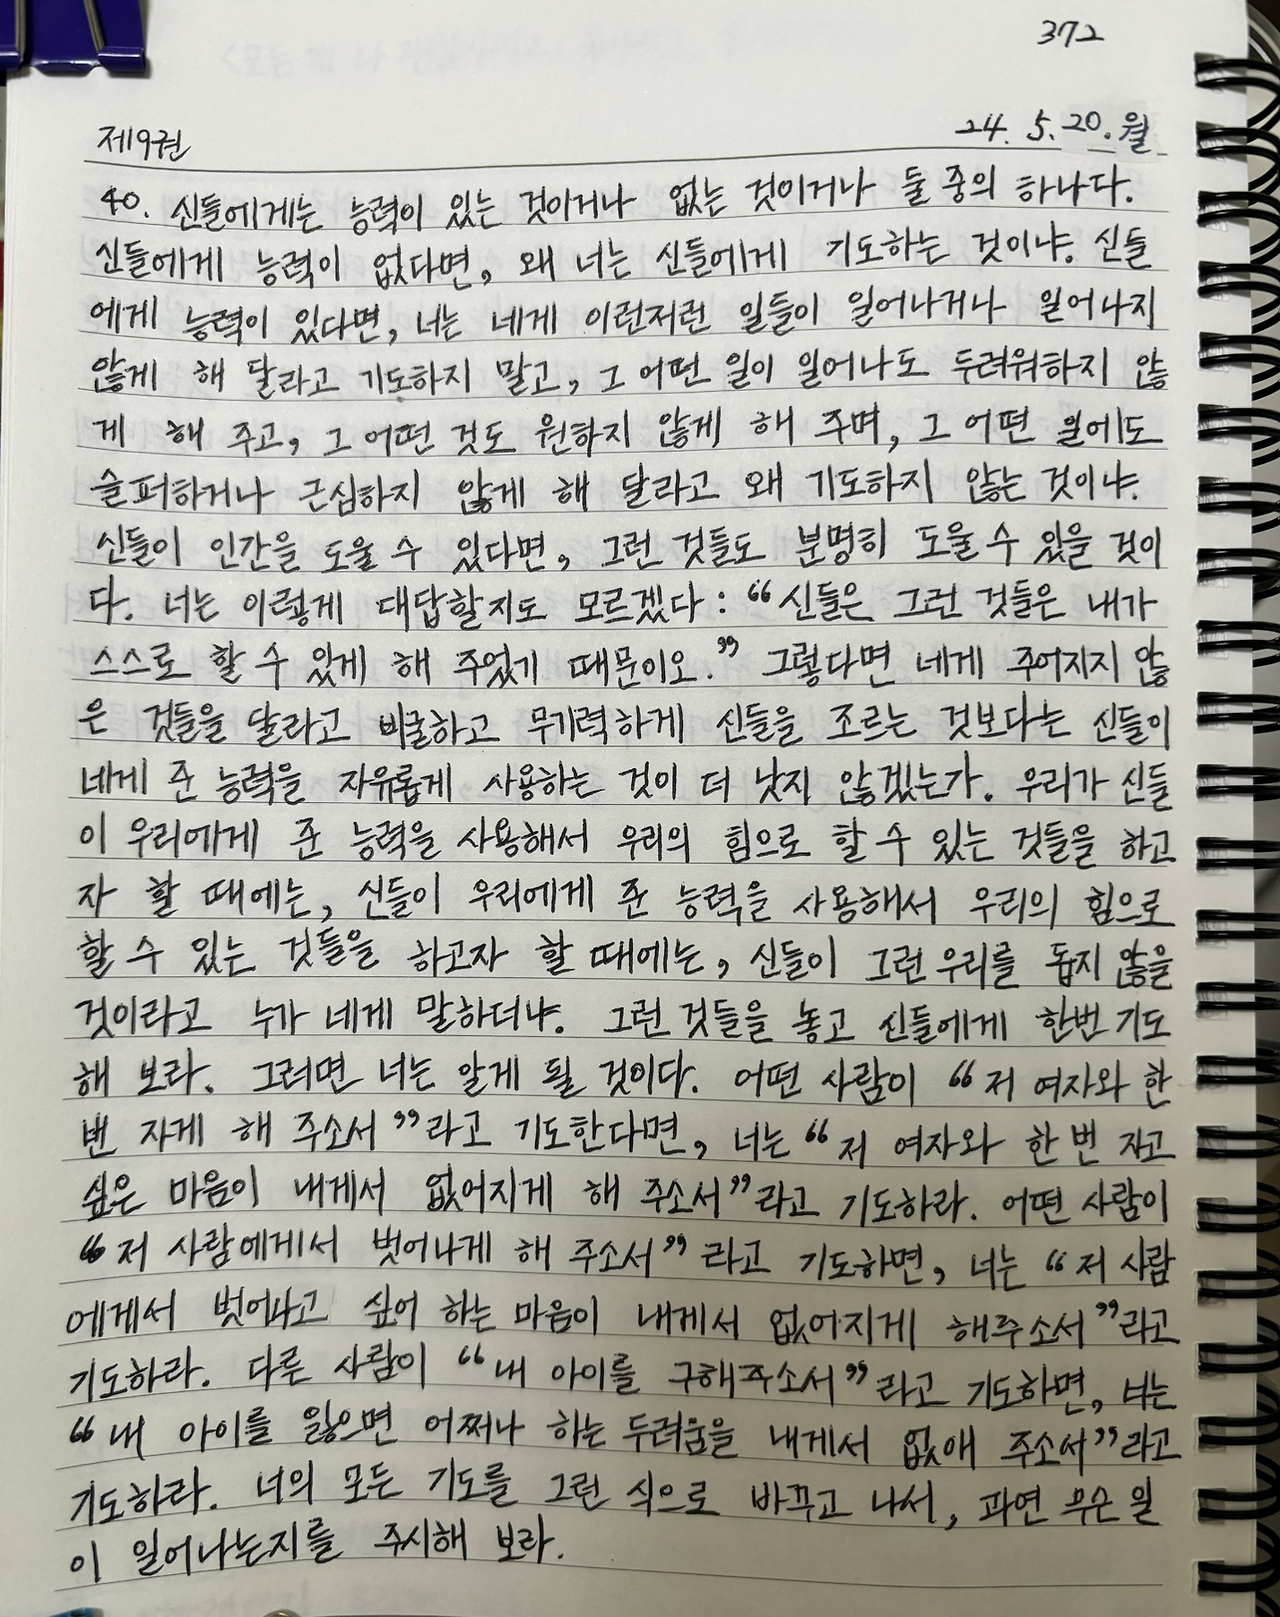 372
제9권 24. 5. 20. 월
40. 신들에게는 능력이 있는 것이거나 없는 것이거나 둘 중의 하나다.
신들에게 능력이 없다면, 왜 너는 신들에게 기도하는 것이냐. 신들
에게 능력이 있다면, 너는 네게 이런저런 일들이 일어나거나 일어나지
않게 해 달라고 기도하지 말고, 그 어떤 일이 일어나도 두려워하지 않
게 해 주고, 그 어떤 것도 원하지 않게 해 주며, 그 어떤 일에도
슬퍼하거나 근심하지 않게 해 달라고 왜 기도하지 않는 것이냐.
신들이 인간을 도울 수 있다면, 그런 것들도 분명히 도울 수 있을 것이
다. 너는 이렇게 대답할지도 모르겠다: “신들은 그런 것들은 내가
스스로 할 수 있게 해 주었기 때문이오.” 그렇다면 네게 주어지지 않
은 것들을 달라고 비굴하고 무기력하게 신들을 조르는 것보다는 신들이
네게 준 능력을 자유롭게 사용하는 것이 더 낫지 않겠는가. 우리가 신들
이 우리에게 준 능력을 사용해서 우리의 힘으로 할 수 있는 것들을 하고
자 할 때에는, 신들이 우리에게 준 능력을 사용해서 우리의 힘으로
할 수 있는 것들을 하고자 할 때에는, 신들이 그런 우리를 돕지 않을
것이라고 누가 네게 말하더냐. 그런 것들을 놓고 신들에게 한번 기도
해 보라. 그러면 너는 알게 될 것이다. 어떤 사람이 “저 여자와 한
번 자게 해 주소서”라고 기도한다면, 너는 “저 여자와 한 번 자고
싶은 마음이 내게서 없어지게 해 주소서”라고 기도하라. 어떤 사람이
“저 사람에게서 벗어나게 해 주소서”라고 기도하면, 너는 “저 사람
에게서 벗어나고 싶어 하는 마음이 내게서 없어지게 해주소서”라고
기도하라. 다른 사람이 “내 아이를 구해주소서”라고 기도하면, 너는
“내 아이를 잃으면 어쩌나 하는 두려움을 내게서 없애 주소서”라고
기도하라. 너의 모든 기도를 그런 식으로 바꾸고 나서, 과연 무슨 일
이 일어나는지를 주시해 보라.